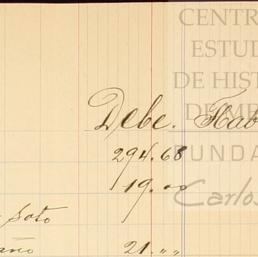 CENTR
ESTUD
DE HIST
DE ME
FUNDA
Carlos
Debe. Hab
294.68
19.00
Soto
año 21.〃〃